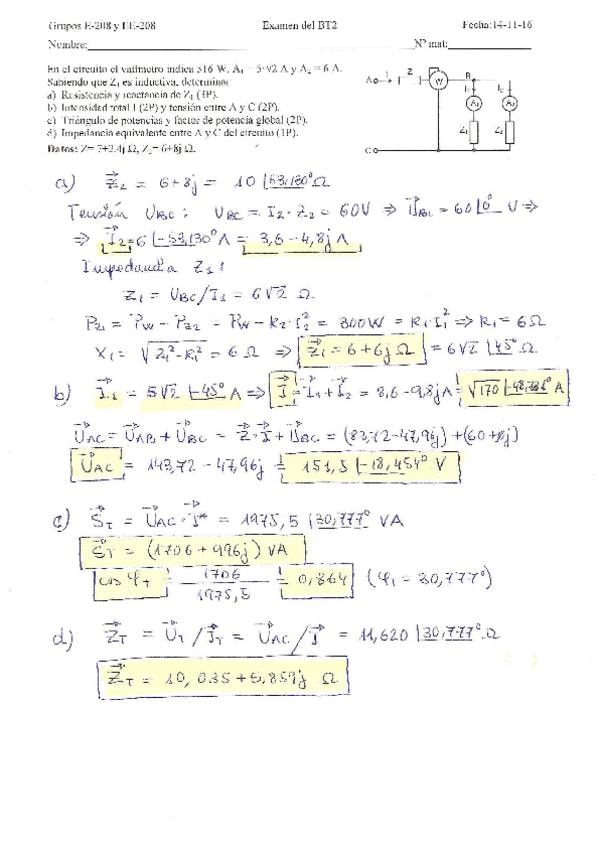 Grupos E-208 y EE-208 Examen del BT2 Fecha:14-11-16
Nombre: Nº mat:
En el circuito el vatímetro indica 516 W, A₁ = 5·√2 A y A₂ = 6 A.
Sabiendo que Z₁ es inductiva, determinar:
a) Resistencia y reactancia de Z₁ (3P).
b) Intensidad total I (2P) y tensión entre A y C (2P).
c) Triángulo de potencias y factor de potencia global (2P).
d) Impedancia equivalente entre A y C del circuito (1P).
Datos: Z= 7+2.4j Ω, Z₂= 6+8j Ω.
A I Z W B
I₁ I₂
A₁ A₂
Z₁ Z₂
C
a) Z⃗₂ = 6+8j = 10 |53,130° Ω
Tensión U_BC: U_BC = I₂·Z₂ = 60V ⇒ U⃗_BC = 60 |0° V ⇒
⇒ I⃗₂ = 6 |-53,130° A = 3,6 - 4,8j A
Impedancia Z₁:
Z₁ = U_BC/I₁ = 6√2 Ω.
P_Z1 = P_W - P_Z2 = P_W - R₂·I₂² = 300W = R₁·I₁² ⇒ R₁ = 6Ω
X₁ = √(Z₁²-R₁²) = 6Ω ⇒ Z⃗₁ = 6+6j Ω = 6√2 |45° Ω.
b) I⃗₁ = 5√2 |-45° A ⇒ I⃗ = I⃗₁ + I⃗₂ = 8,6 - 9,8j A = √170 |-48,731° A
U⃗_AC = U⃗_AB + U⃗_BC = Z⃗·I⃗ + U⃗_BC = (83,72 - 47,96j) + (60+0j)
U⃗_AC = 143,72 - 47,96j = 151,5 |-18,454° V
c) S⃗_T = U⃗_AC · I⃗* = 1975,5 |30,777° VA
S⃗_T = (1706 + 996j) VA
cos φ_T = 1706 / 1975,5 = 0,864 (φ₁ = 30,777°)
d) Z⃗_T = U⃗_T / I⃗_T = U⃗_AC / I⃗ = 11,620 |30,777° Ω
Z⃗_T = 10,035 + 5,859j Ω